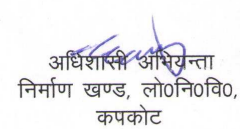 अधिशासी अभियन्ता
निर्माण खण्ड, लो0नि0वि0,
कपकोट